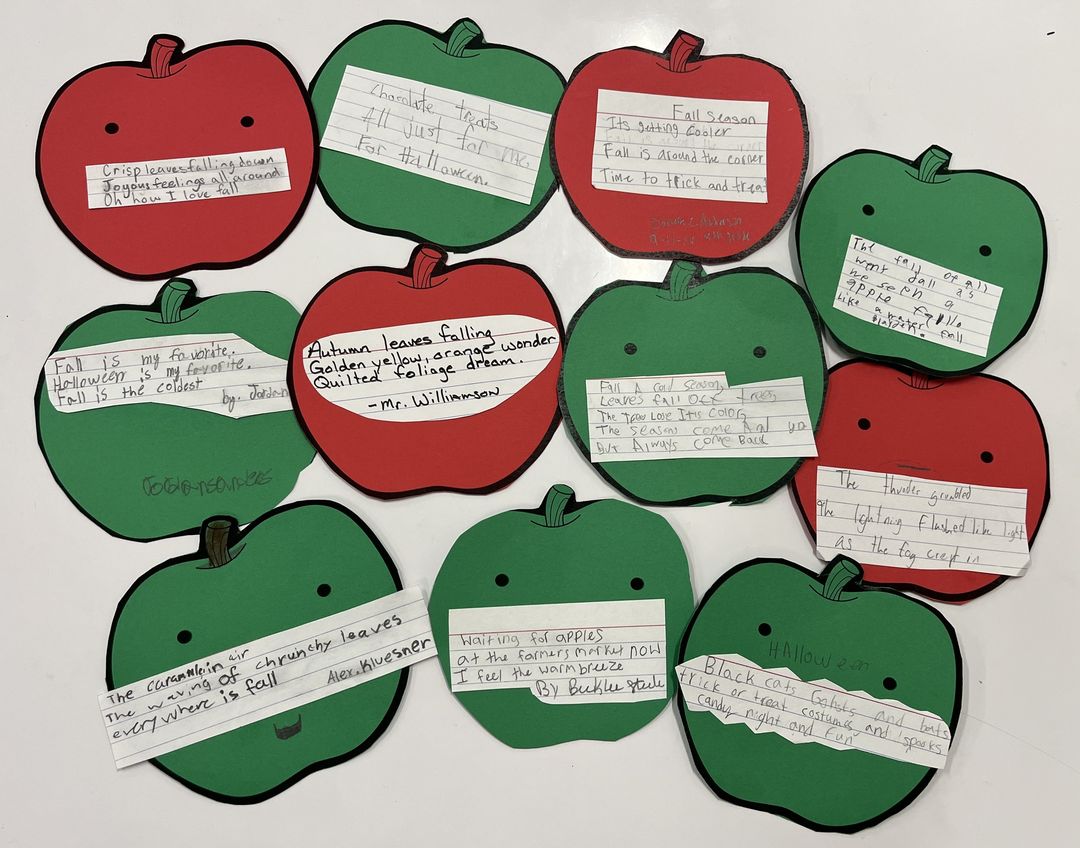 Crisp leaves falling down
Joyous feelings all around
Oh how I love fall
Chocolate treats
All just for me
For Halloween.
Fall season
Its getting cooler
Fall is around the corner
Time to trick and treat
The fall of all
went dall as
we seen a
apple
Like a water
fall
Fall is my favorite.
Halloween is my favorite.
Fall is the coldest
by. Jordan
Autumn leaves falling
Golden yellow, orange wonder
Quilted foliage dream.
-Mr. Williamson
Fall A cold season
Leaves fall off trees
The Tree Lose Itis Color
The season come And go
But Always come Back
The thunder grumbled
the lightning flashed like light
as the fog crept in
The caramNle in air
The waving of chrunchy leaves
everywhere is fall
Alex. Kluesner
Waiting for apples
at the farmers market now
I feel the warm breeze
By Becklee Steele
HAlloween
Black cats Gohsts and bats
trick or treat costumes and spooks
candy night and Fun